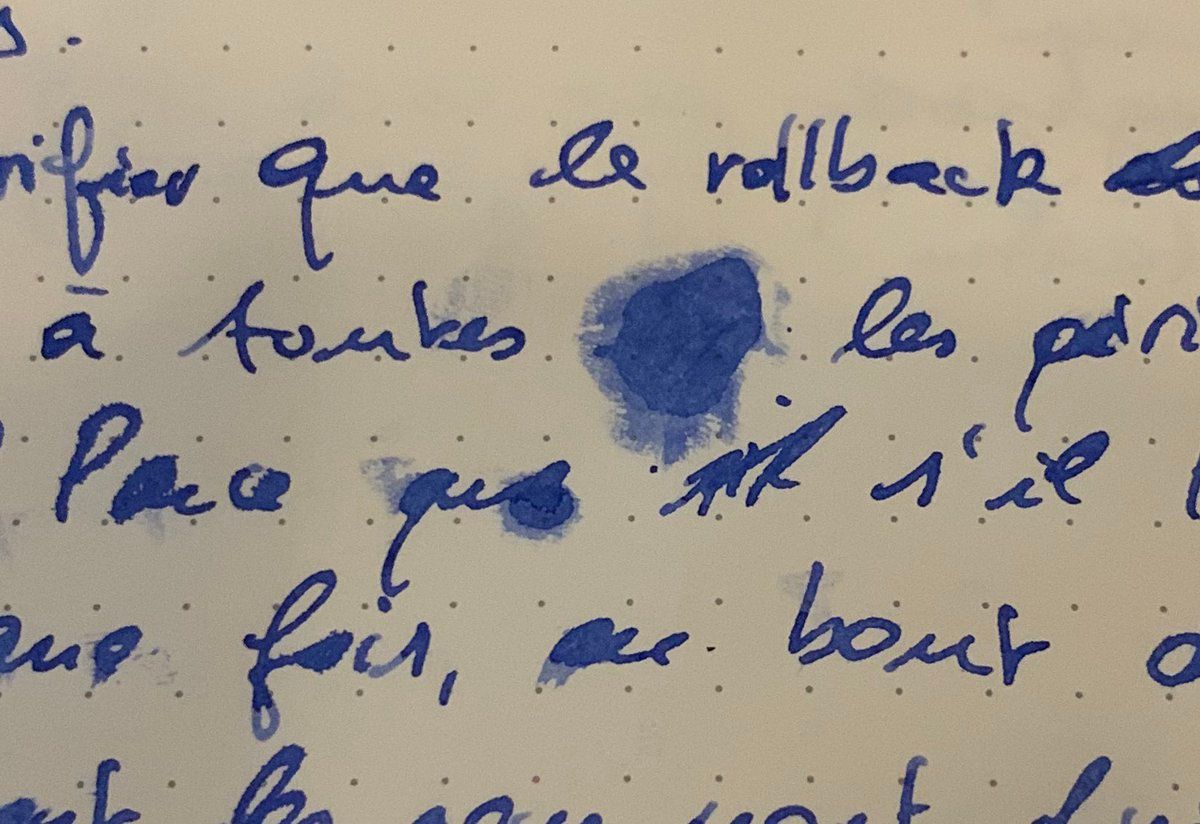 s.
rifier que le rollback
à toutes les
Parce que s'il
que fois, au bout